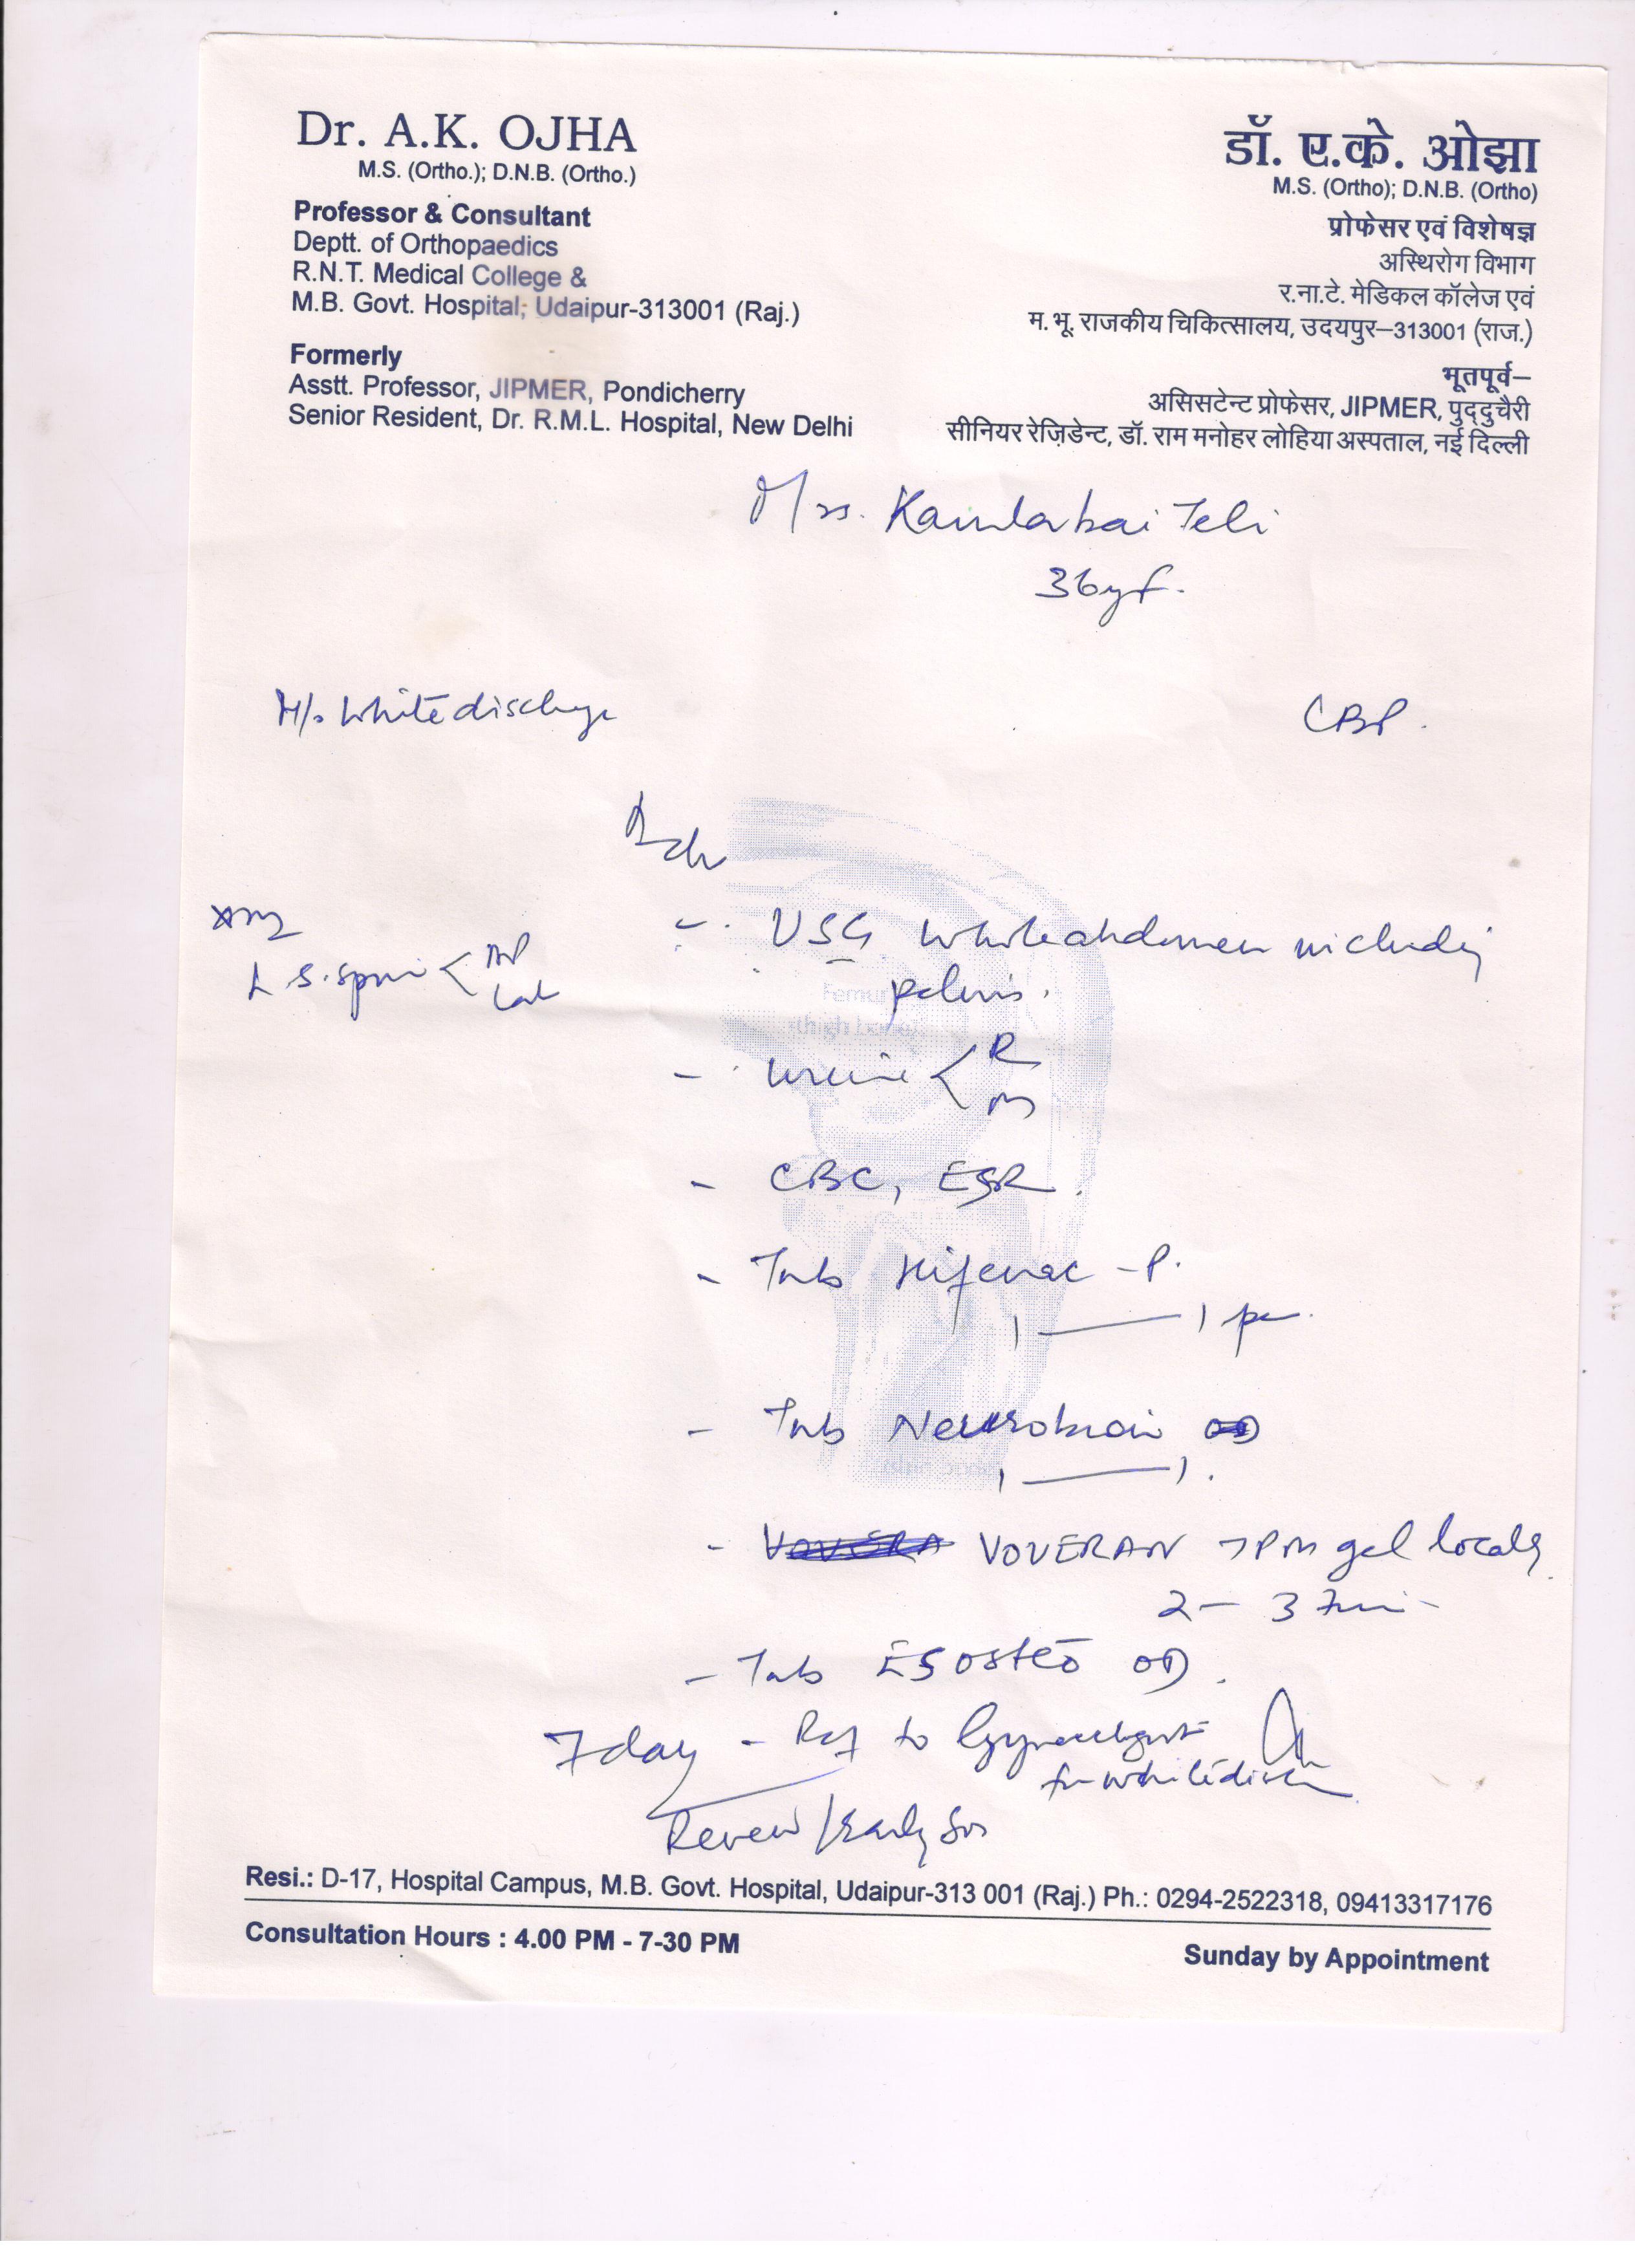 Dr. A.K. OJHA
M.S. (Ortho.); D.N.B. (Ortho.)
Professor & Consultant
Deptt. of Orthopaedics
R.N.T. Medical College &
M.B. Govt. Hospital, Udaipur-313001 (Raj.)
Formerly
Asstt. Professor, JIPMER, Pondicherry
Senior Resident, Dr. R.M.L. Hospital, New Delhi
डॉ. ए.के. ओझा
M.S. (Ortho); D.N.B. (Ortho)
प्रोफेसर एवं विशेषज्ञ
अस्थिरोग विभाग
र.ना.टे. मेडिकल कॉलेज एवं
म. भू. राजकीय चिकित्सालय, उदयपुर–313001 (राज.)
भूतपूर्व–
असिसटेन्ट प्रोफेसर, JIPMER, पुद्दुचैरी
सीनियर रेज़िडेन्ट, डॉ. राम मनोहर लोहिया अस्पताल, नई दिल्ली
Mrs. Kamlabai Teli
36yf.
H/o White discharge
CBP.
Adv
L S. spine < AP
Lat
- USG Whole abdomen including
pelvis.
- Urine < R
M
- CBC, ESR.
- Tab Hifenac - P.
1 — 1 pc
- Tab Neurobion
1 — 1.
- VOVERAN TPM gel locally
2 - 3 Time
- Tab ESOSTEO OD.
7 day - Ref to Gynecologist
for white disch
Review / Early SOS
Femur
(thigh bone)
Resi.: D-17, Hospital Campus, M.B. Govt. Hospital, Udaipur-313 001 (Raj.) Ph.: 0294-2522318, 09413317176
Consultation Hours : 4.00 PM - 7-30 PM
Sunday by Appointment